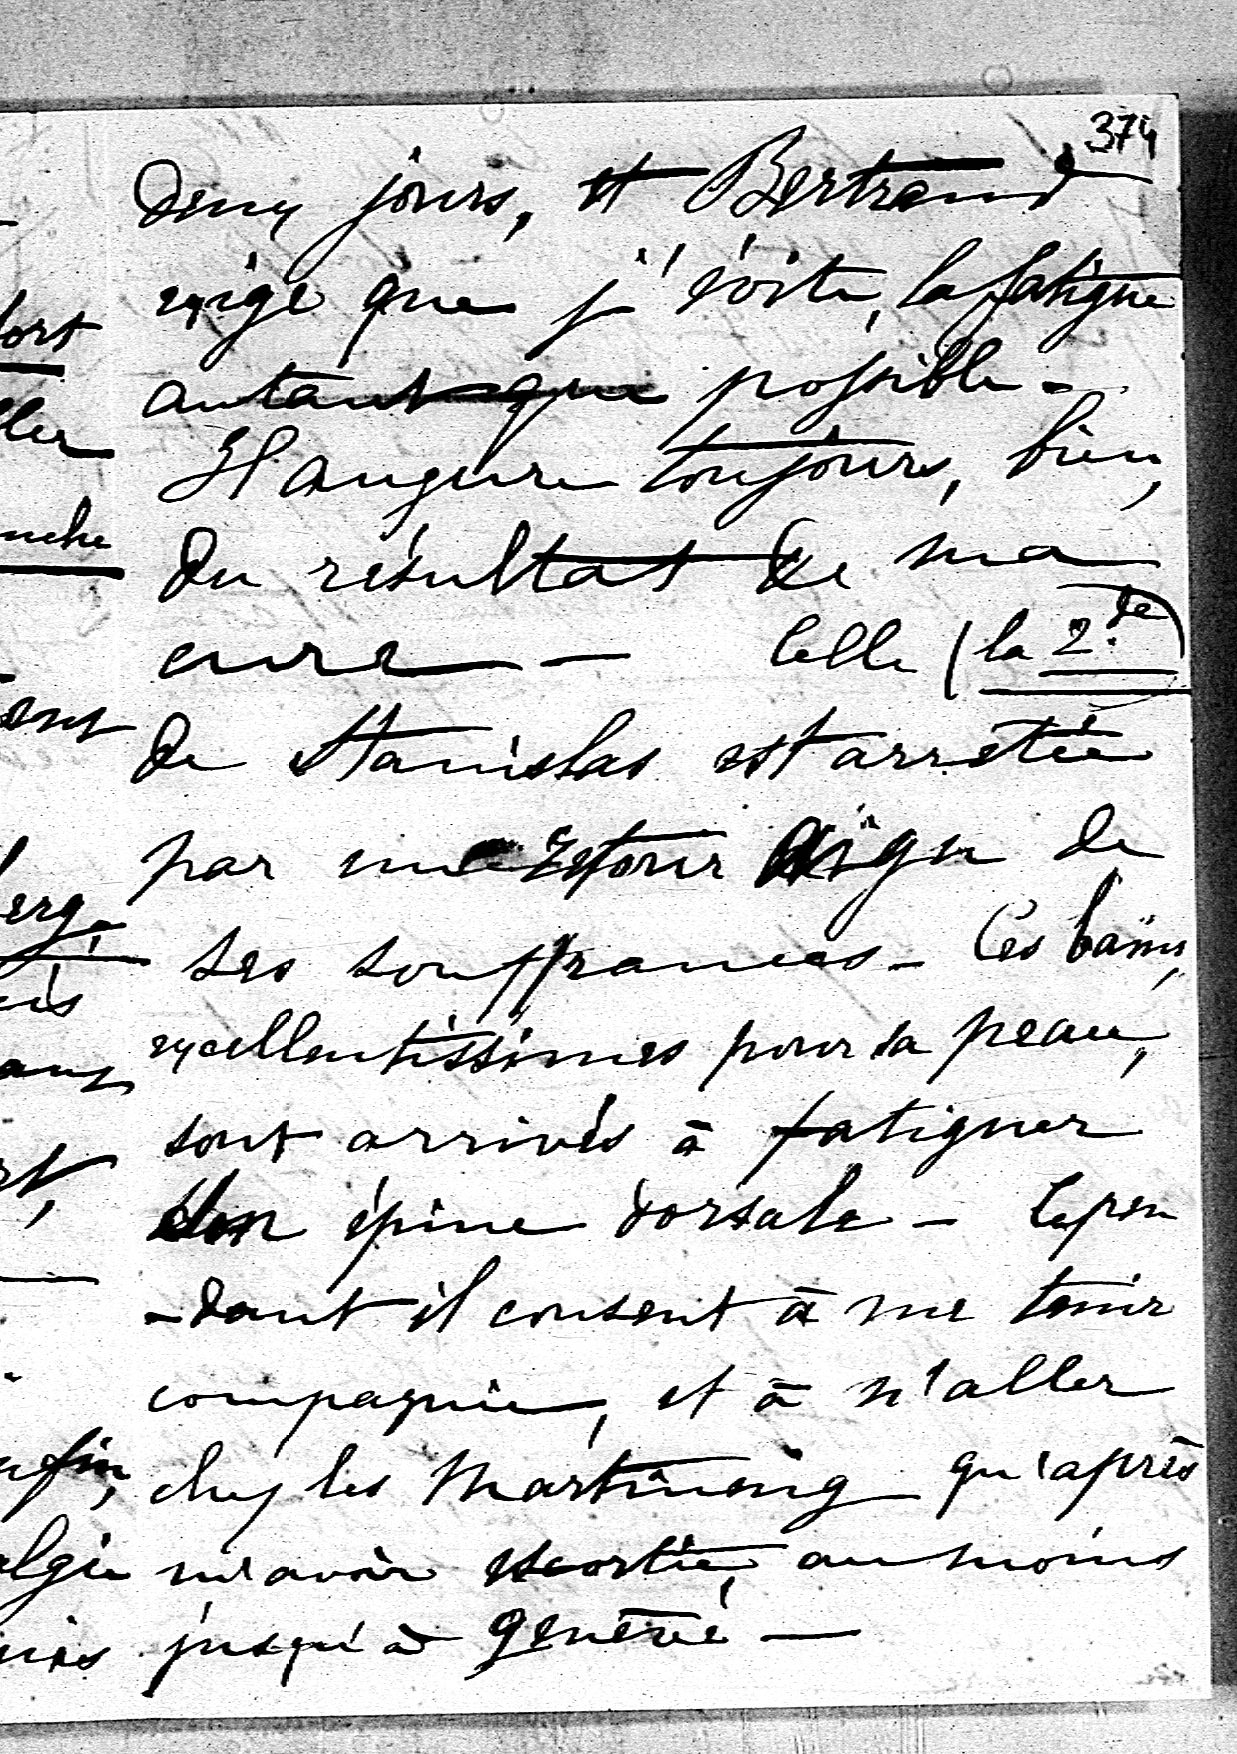 374
Deux jours, et Bertrand
exige que j'évite, la fatigue
autant que possible -
Il augure toujours, bien,
du résultat de ma
cure — Celle (la 2.de)
de Stanislas est arretée
par un retour aigu de
ses souffrances - Ces bains,
excellentissimes pour sa peau,
sont arrivés à fatiguer
son épine dorsale - Cepen
-dant il consent à me tenir
compagnie, et à n'aller
chez les Martinengo qu'après
m'avoir escortée, au moins
jusqu'à genève —
fort
ller
nche
ent
berg,
ans
rt,
enfin,
algie